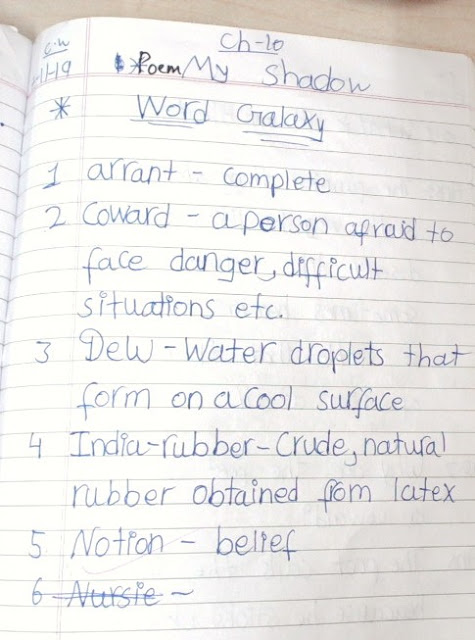 C.W
Ch-10
-11-19
* Poem/My Shadow
* Word Galaxy
1 arrant - complete
2 Coward - a person afraid to
face danger, difficult
situations etc.
3 Dew - Water droplets that
form on a cool surface
4 India-rubber - Crude, natural
rubber obtained from latex
5 Notion - belief
6 Nursie -